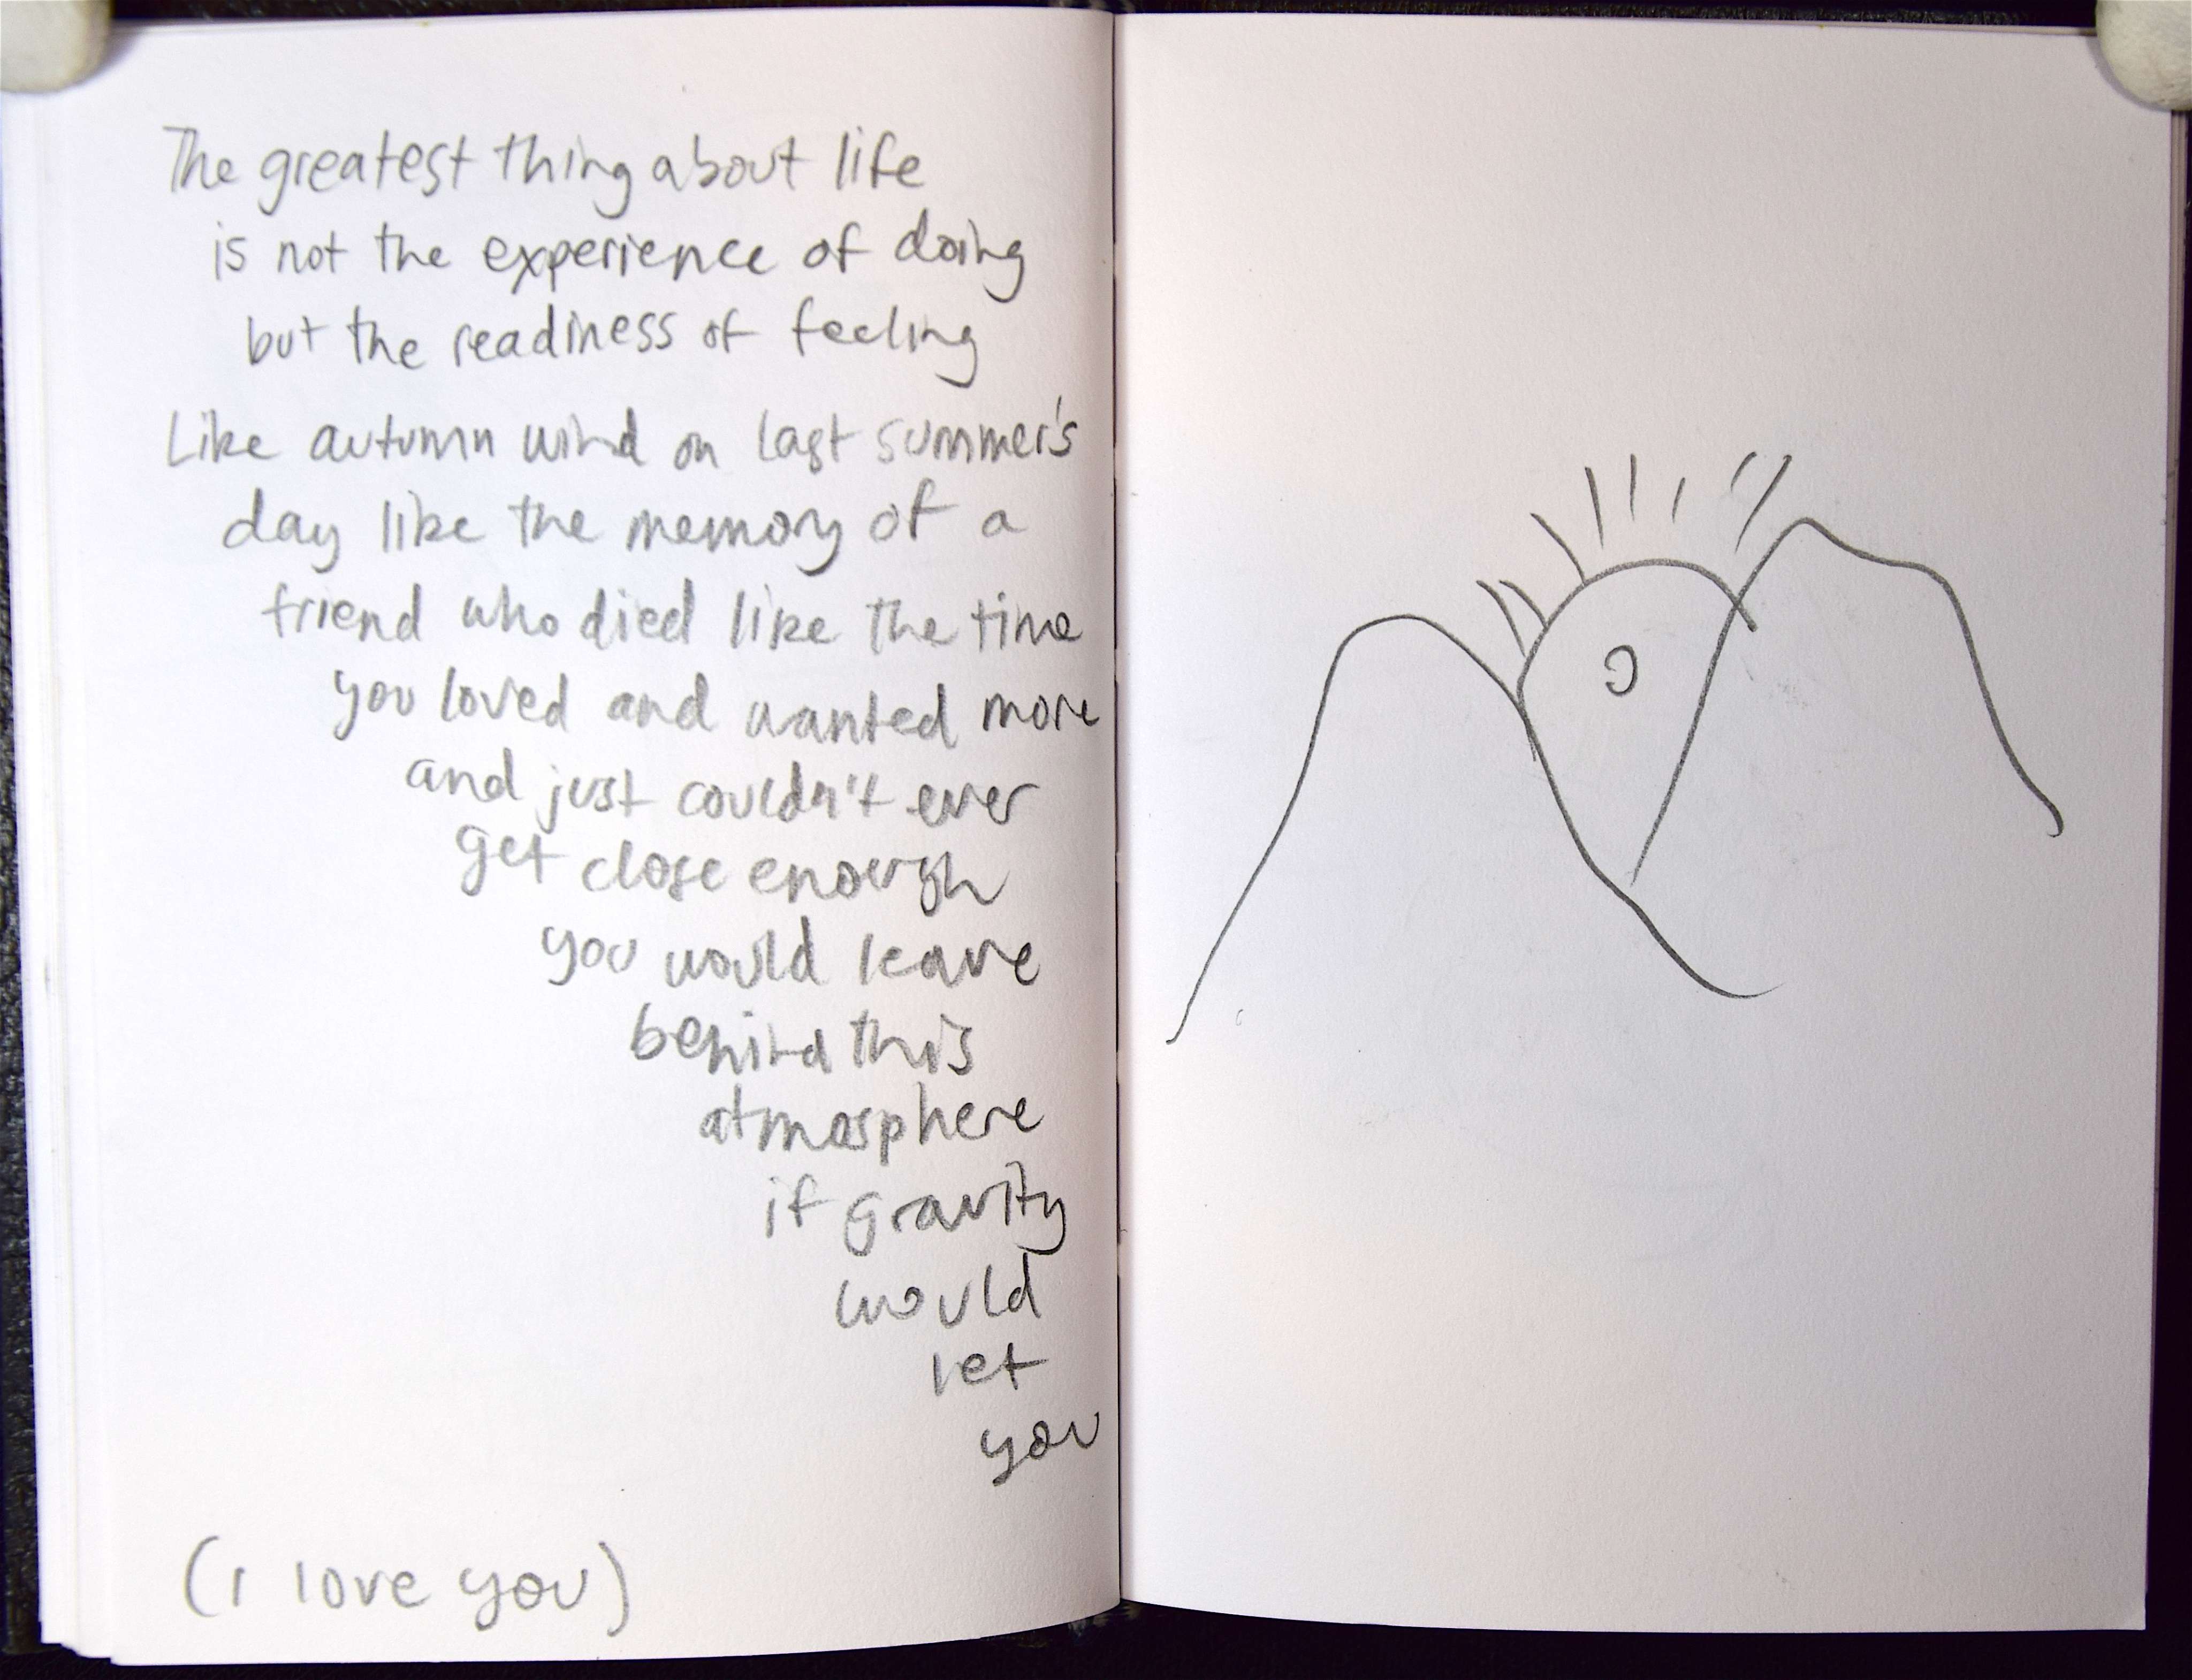 The greatest thing about life
is not the experience of doing
but the readiness of feeling
Like autumn wind on last summer's
day like the memory of a
friend who died like the time
you loved and wanted more
and just couldn't ever
get close enough
you would leave
behind this
atmosphere
if gravity
would
let
you
(I love you)